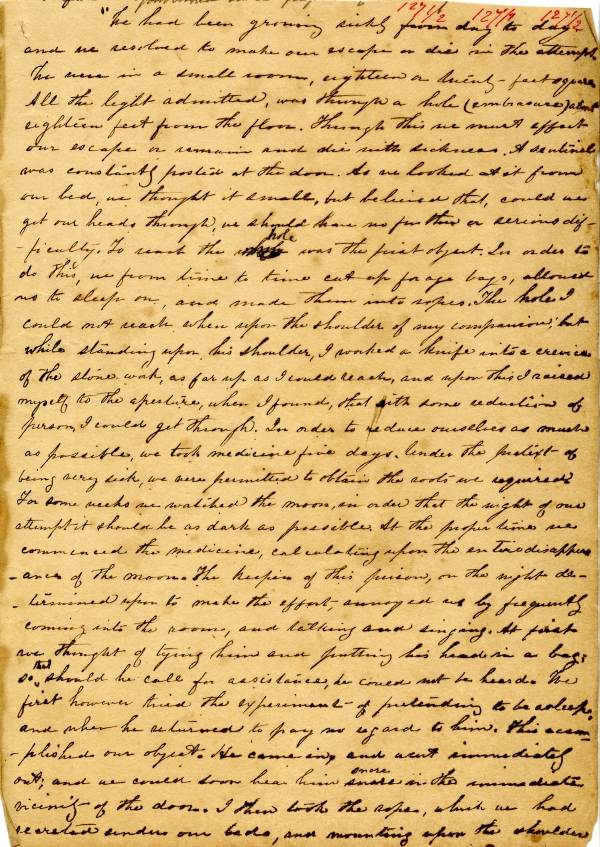 127 1/2 127/7 127 1/2
"We had been growing sickly from day to day
and we resolved to make our escape or die in the attempt.
We were in a small room, eighteen or twenty-feet square
All the light admitted, was through a hole (embrasure) about
eighteen feet from the floor. Through this we must effect
our escape or remain and die with sickness. A sentinel
was constantly posted at the door. As we looked at it from
our bed, we thought it small, but believed that, could we
get our heads through, we should have no further or serious dif-
-ficulty. To reach the hole was the first object. In order to
do this, we from time to time cut up forage bags, allowed
us to sleep on, and made them into ropes. The hole I
could not reach when upon the shoulder of my companion; but
while standing upon his shoulder, I worked a knife into a crevice
of the stone work, as far up as I could reach, and upon this I raised
myself to the aperture, when I found, that with some reduction of
person, I could get through. In order to reduce ourselves as much
as possible, we took medicine five days. Under the pretext of
being very sick, we were permitted to obtain the roots we required.
For some weeks we watched the moon, in order that the night of our
attempt it should be as dark as possible. At the proper time we
commenced the medicine, calculating upon the entire disappear
-ance of the moon. The keeper of this prison, on the night de-
-termined upon to make the effort, annoyed us by frequently
coming into the room, and talking and singing. At first
we thought of tying him and putting his head in a bag;
so, that should he call for assistance, he could not be heard. We
first however tried the experiment of pretending to be asleep,
and when he returned to pay no regard to him. This accom-
-plished our object. He came in, and went immediately
out; and we could soon hear him snore in the immediate
vicinity of the door. I then took the ropes, which we had
secreted under our beds, and mounting upon the shoulder